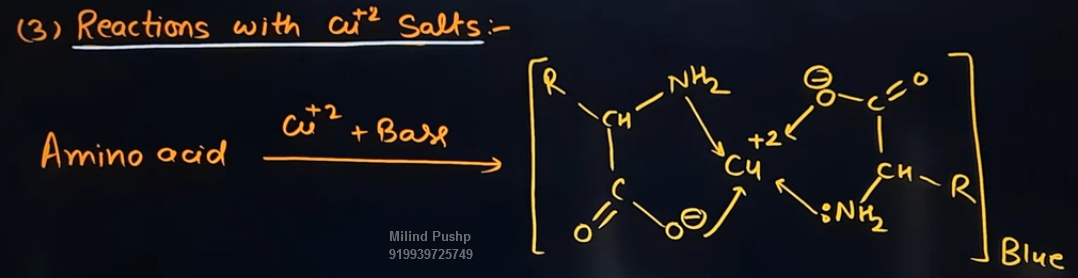 (3) Reactions with Cu+2 Salts:-
Amino acid
Cu+2 + Base
R
CH
NH2
C
O
O⊖
Cu+2
⊖
O
C
O
CH
R
:NH2
Blue
Milind Pushp
919939725749